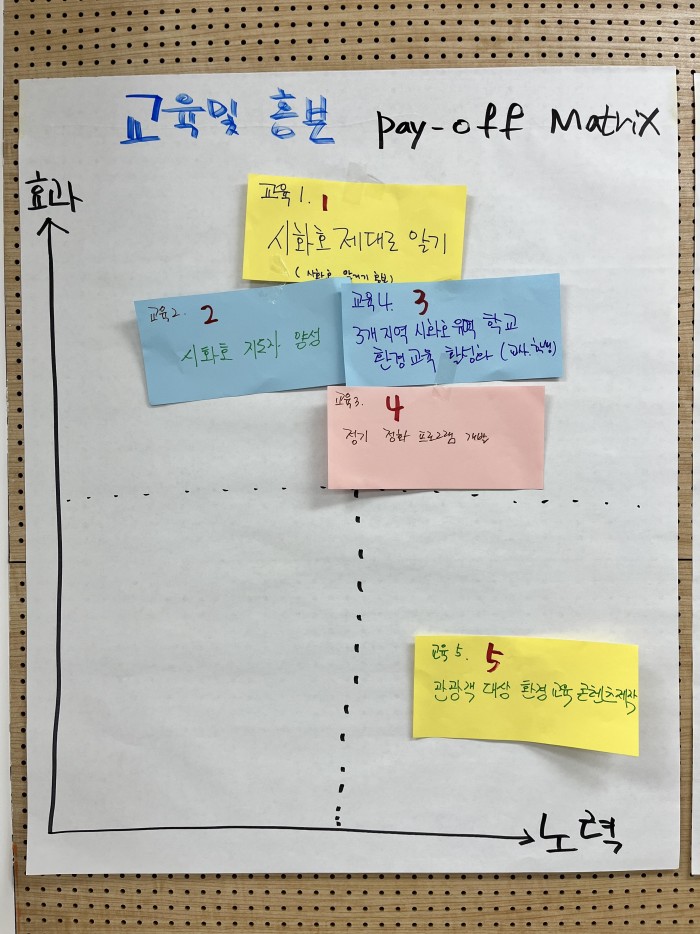 교육및 홍보 pay-off Matrix
효과
교육1. 1
시화호 제대로 알기
(시화호 홍보)
교육2. 2
시화호 지도자 양성
교육4. 3
3개 지역 시화호 유역 학교
환경교육 활성화 (교사.학생)
교육3. 4
정기 정화 프로그램 개발
교육5. 5
관광객 대상 환경교육 콘텐츠제작
노력